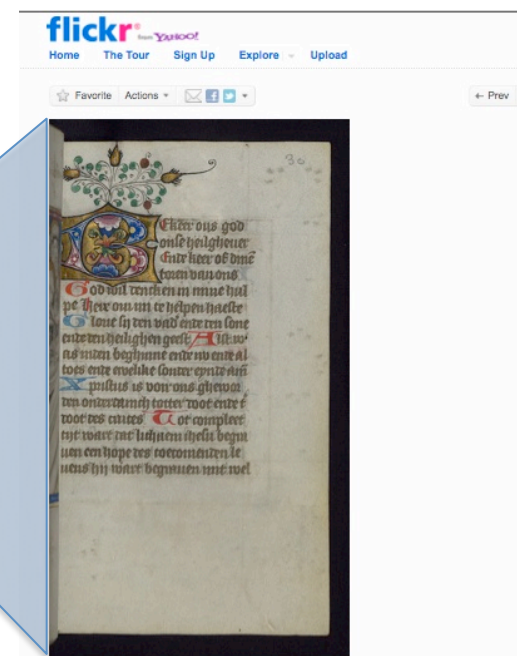 flickr from YAHOO!
Home The Tour Sign Up Explore Upload
Favorite Actions
← Prev
30
Ekeer ons god
onse heilgheuer
Ende keer of dinē
toren van ons
God wil dencken in mine hul
pe Here om mi te helpen haeste
Glorie sy den vad ende den sone
ende den heilighen geest Alst w
as inden beghinne ende nv ende al
toes ende ewelike sonder eynde Am
Xpristus is voir ons ghewor
den onderdanich totter doot ende t
doot des cruces Tot compleet
tijt wart dat lichaem ihesu begra
uen een hope des toecomenden le
uens hij wart begrauen mit wel